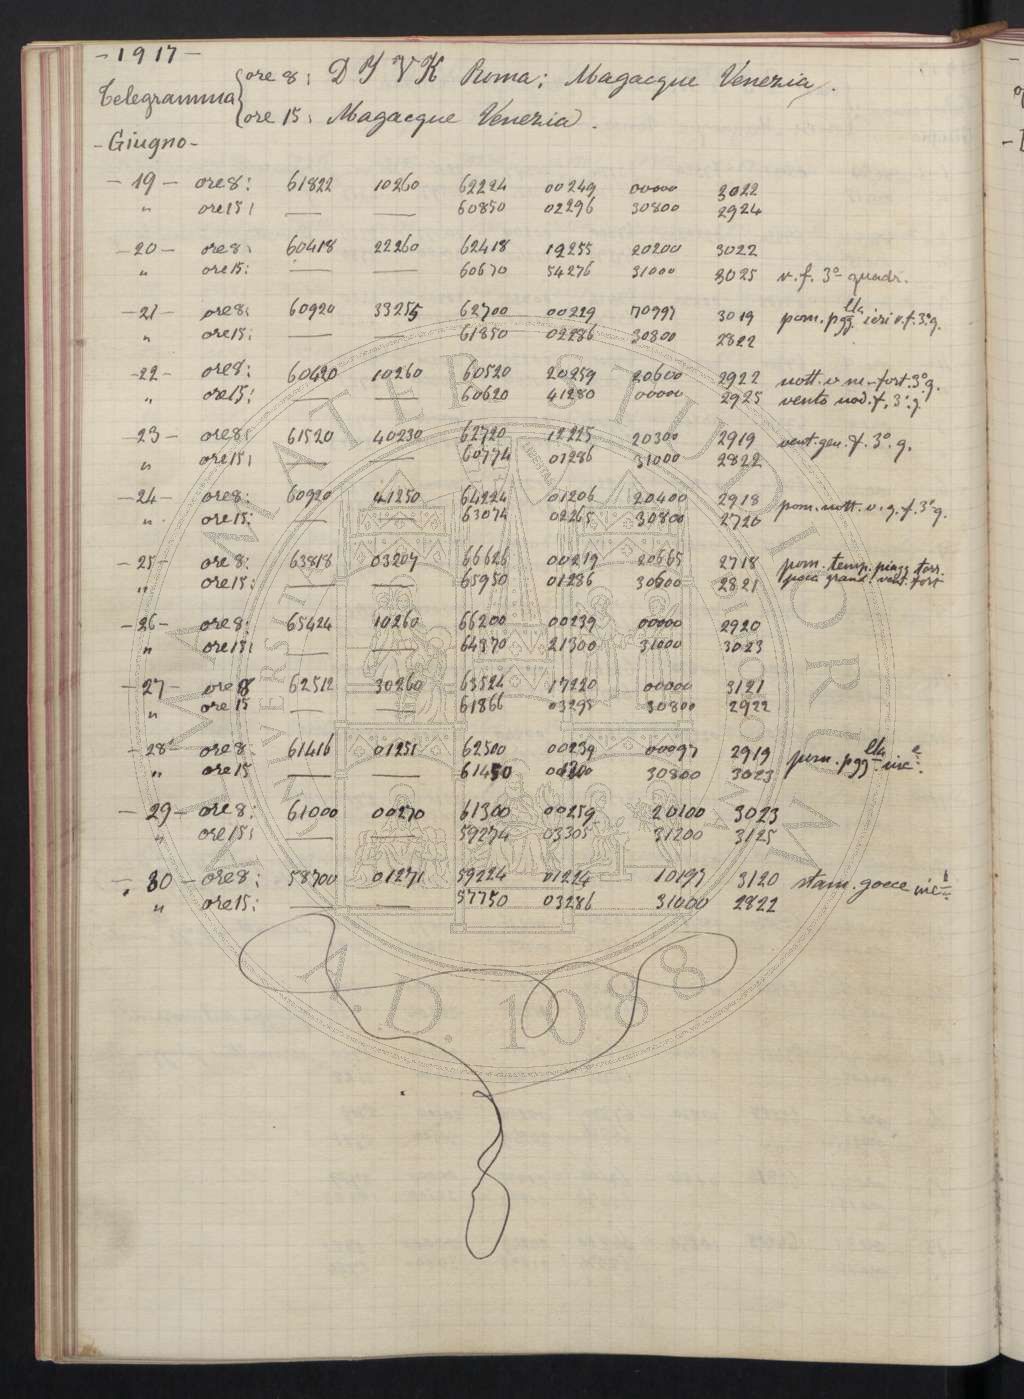 - 1917 -
Telegramma { ore 8: D Y V K Roma; Magacque Venezia.
ore 15: Magacque Venezia.
- Giugno -
- 19 - ore 8: 61822 10260 62224 00249 00000 3022
" ore 15: — — 60850 02296 30800 2924
- 20 - ore 8: 60418 22260 62418 19255 20200 3022
" ore 15: — — 60670 54276 31000 3025 v. f. 3º quadr.
- 21 - ore 8: 60920 33255 62700 00229 70997 3019 pom. pgg.lla ieri v. f. 3º g.
" ore 15: — — 61850 02286 30800 2822
- 22 - ore 8: 60420 10260 60520 20259 20600 2922 nott. v. m-fort. 3º g.
" ore 15: — — 60620 41280 00000 2925 vento mod. f, 3º g
- 23 - ore 8: 61520 40230 62720 12225 20300 2919 vent. gen. f. 3º. g.
" ore 15: — — 60774 01286 31000 2822
- 24 - ore 8: 60920 41250 64224 01206 20400 2918 pom. nott. v. g. f. 3º g.
" ore 15: — — 63074 02265 30800 2720
- 25 - ore 8: 63818 03207 66626 00219 20665 2718 pom. temp. piogg torr.
" ore 15: — — 65950 01286 30600 2821 poca grand. vent. fort
- 26 - ore 8: 65424 10260 66200 00239 00000 2920
" ore 15: — — 64370 21300 31000 3023
- 27 - ore 8 62512 30260 63524 17220 00000 3121
" ore 15 — — 61866 03295 30800 2922
- 28 - ore 8: 61416 01251 62500 00239 00097 2919 pom. pgg.lla
" ore 15 — — 61450 30800 3023
- 29 - ore 8: 61000 00270 61300 00259 20100 3023
" ore 15: — — 59274 03305 31200 3125
- 30 - ore 8: 58700 01271 59224 01224 10197 3120 stam. gocce
" ore 15: — — 57750 03286 31000 2822
ALMA MATER STUDIORUM
A.D. 1088